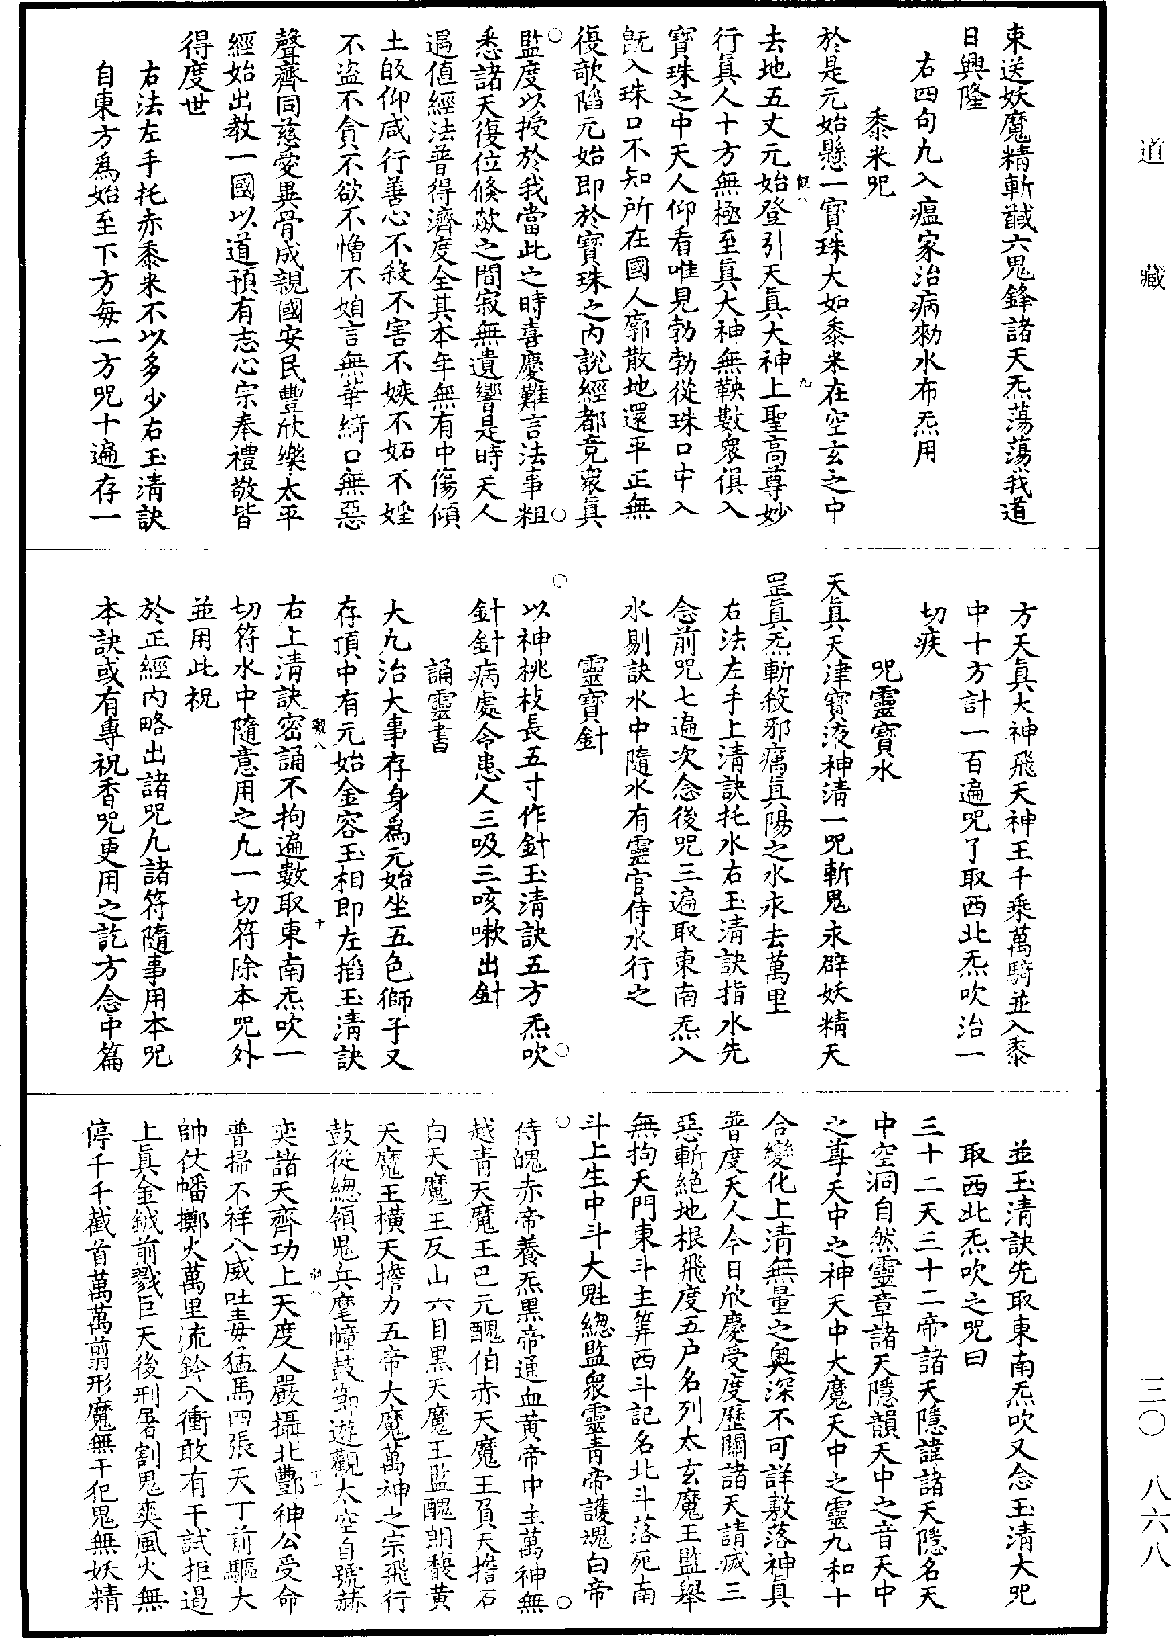 東送妖魔精斬馘六鬼鋒諸天炁蕩蕩我道
日興隆
右四句凡入瘟家治病勑水布炁用
黍米咒
於是元始懸一寶珠大如黍米在空玄之中
去地五丈元始登引天真大神上聖高尊妙
行真人十方無極至真大神無鞅數衆俱入
寶珠之中天人仰看唯見勃勃從珠口中入
既入珠口不知所在國人廓散地還平正無
復欹陷元始即於寶珠之内說經都竟衆真
監度以授於我當此之時喜慶難言法事粗
悉諸天復位倐歘之間寂無遺響是時天人
遇值經法普得濟度全其本年無有中傷傾
土皈仰咸行善心不殺不害不嫉不妬不婬
不盜不貪不欲不憎不㛐言無華綺口無惡
聲齊同慈愛異骨成親國安民豐欣樂太平
經始出教一國以道預有志心宗奉禮敬皆
得度世
右法左手托赤黍米不以多少右玉清訣
自東方為始至下方每一方咒十遍存一
方天真大神飛天神王千乘萬騎並入黍
中十方計一百遍咒了取西北炁吹治一
切疾
咒靈寶水
天真天津寶液神清一咒斬鬼永辟妖精天
罡真炁斬殺邪癘真陽之水永去萬里
右法左手上清訣托水右玉清訣指水先
念前咒七遍次念後咒三遍取東南炁入
水剔訣水中隨水有靈官侍水行之
靈寶針
以神桃枝長五寸作針玉清訣五方炁吹
針針病處令患人三吸三咳嗽出針
誦靈書
大凡治大事存身為元始坐五色獅子又
存頂中有元始金容玉相即左搯玉清訣
右上清訣密誦不拘遍數取東南炁吹一
切符水中隨意用之凡一切符除本咒外
並用此祝
於正經内略出諸咒凡諸符隨事用本咒
本訣或有專祝香咒更用之訖方念中篇
並玉清訣先取東南炁吹又念玉清大咒
取西北炁吹之咒曰
三十二天三十二帝諸天隱諱諸天隱名天
中空洞自然靈章諸天隱韻天中之音天中
之尊天中之神天中大魔天中之靈九和十
合變化上清無量之奥深不可詳敷落神真
普度天人今日欣慶受度歷關諸天請滅三
惡斬絶地根飛度五户名列太玄魔王監舉
無拘天門東斗主筭西斗記名北斗落死南
斗上生中斗大魁總監衆靈青帝護魂白帝
侍魄赤帝養炁黑帝通血黄帝中主萬神無
越青天魔王巴元醜伯赤天魔王負天擔石
白天魔王反山六目黑天魔王監醜朗馥黄
天魔王横天擔力五帝大魔萬神之宗飛行
鼓從總領鬼兵麾幢鼓節遊觀太空自號赫
奕諸天齊功上天度人嚴攝北酆神公受命
普掃不祥八威吐毒猛馬四張天丁前驅大
帥仗幡擲火萬里流鈴八衝敢有干試拒遏
上真金鉞前戮巨天後刑屠割鬼爽風火無
停千千截首萬萬剪形魔無干犯鬼無妖精
道藏
三〇 八六八